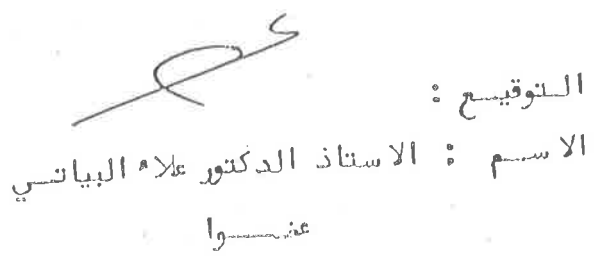 التوقيع :
الاسم : الاستاذ الدكتور علاء البياتي
عضوا